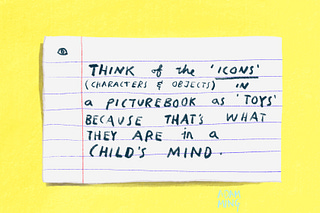 THINK of the 'ICONS'
(CHARACTERS & OBJECTS) IN
a PICTUREBOOK as 'TOYS'
BECAUSE THAT'S WHAT
THEY ARE in a
CHILD'S MIND.